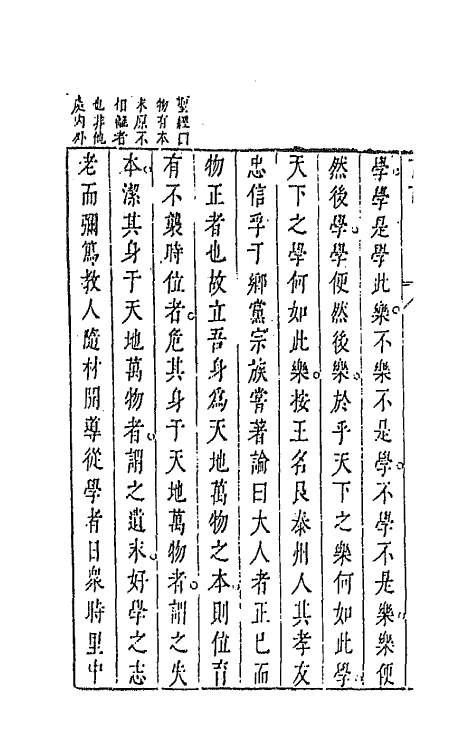 聖經曰
物有本
末原不
相離者
也非他
處內外
學學是學此樂不樂不是學不學不是樂樂便
然後學學便然後樂於乎天下之樂何如此學
天下之學何如此樂按王名艮泰州人其孝友
忠信孚于鄉黨宗族嘗著論曰大人者正巳而
物正者也故立吾身為天地萬物之本則位育
有不襲時位者危其身于天地萬物者謂之失
本潔其身于天地萬物者謂之遺末好學之志
老而彌篤教人隨材開導從學者日衆時里中